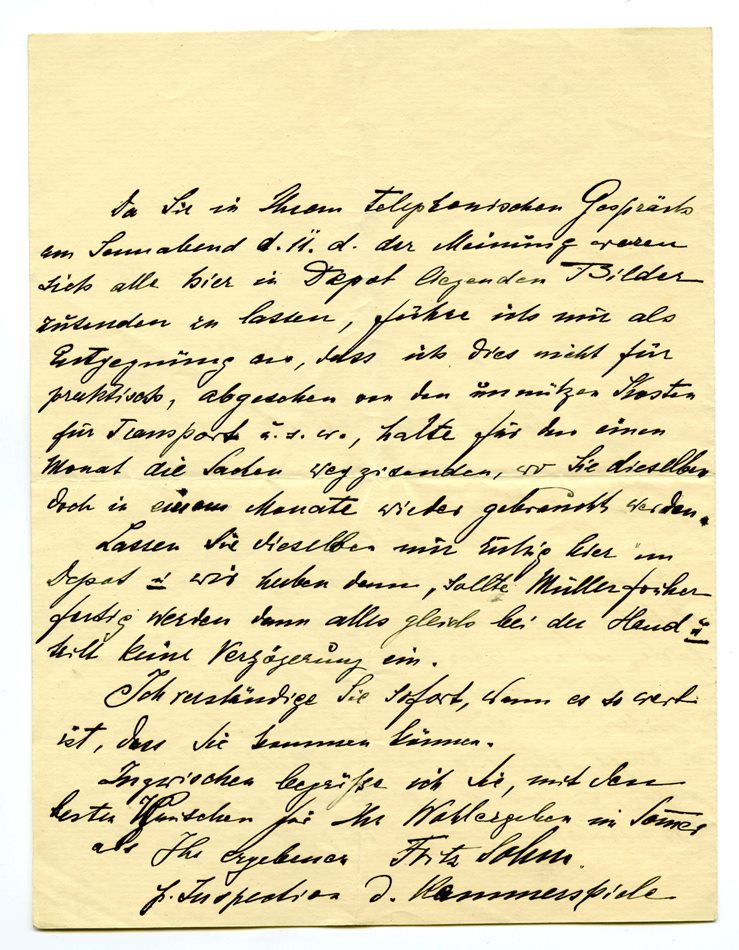 Da Sie in Ihrem telephonischen Gespräch
am Sonnabend d. 11. d. der Meinung waren
sich alle hier in Depot liegenden Bilder
zusenden zu lassen, führe ich nur als
Entgegnung an, dass ich dies nicht für
praktisch, abgesehen von den unnützen Kosten
für Transport u. s. w., halte für den einen
Monat die Sachen wegzusenden, wo Sie dieselben
doch in einem Monate wieder gebraucht werden.
Lassen Sie dieselben nur ruhig hier im
Depot u wir haben dann, sollte Müller früher
fertig werden dann alles gleich bei der Hand u
tritt keine Verzögerung ein.
Ich verständige Sie sofort, wenn es so weit
ist, dass Sie kommen können.
Inzwischen begrüße ich Sie, mit den
besten Wünschen für Ihr Wohlergehen im Sommer
als Ihr ergebener Fritz
p. Inspection d. Kammerspiele